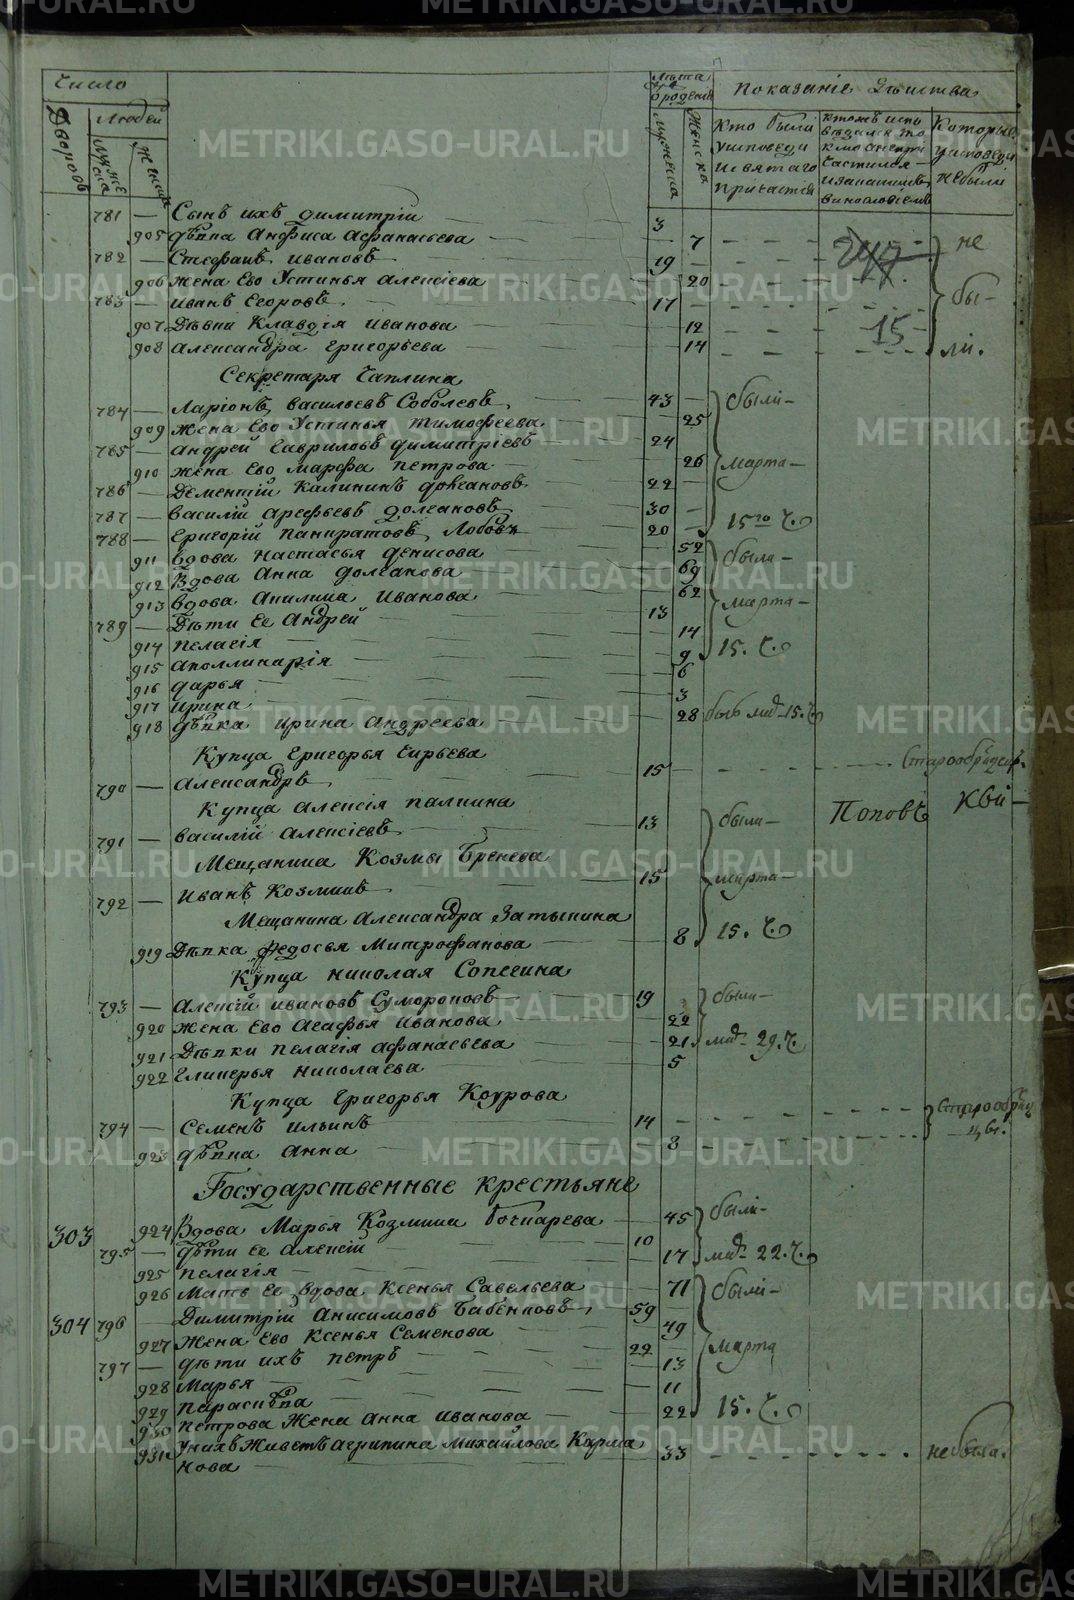 Число
Дворовъ
Людей
Мужеска
Женска
Лѣта
от рожденія
Мужеска
Женска
Показаніе Дѣйства
Кто были у исповеди и святаго причастія
Которыѣ у исповеди не были
781 — Сынъ ихъ димитрій — 3
905 дѣвка Анфиса Афанасьева — 7
782 — Стефанъ ивановъ — 19
906 жена Ево Устинья Алексіева — 20
783 — иванъ Егоровъ — 17
907 Дѣвки Клавдія иванова — 12
908 александра григорьева — 14
не бы- ли.
15
Секретаря Чаплина
784 — Ларіонъ васильевъ Соболевъ — 43
909 жена Ево Устинья тимофеева — 25
785 — андрей гавриловъ димитріевъ — 24
910 жена Ево марфа петрова — 26
786 — Дементій Калининъ долгановъ — 22
787 — василій арефьевъ долгановъ — 30
788 — григорій панкратовъ Лобовъ — 20
были- марта- 15го ч.
911 вдова настасья денисова — 52
912 Вдова Анна долганова — 69
913 вдова Акилина Иванова — 62
789 — Дѣти Ее Андрей — 13
914 пелагія — 14
915 аполлинарія — 9
916 дарья — 6
917 ирина — 3
была- марта- 15. ч.
918 дѣвка ирина андреева — 28
Купца григорья гирьева
790 — Александръ — 15
Старообрядческ.
Купца алексія палкина
791 — василій алексіевъ — 13
Поповъ
Мещанина Козмы Бренева
792 — иванъ Козминъ — 15
Мещанина Александра Затыкина
919 Дѣвка федосья митрофанова — 8
были- марта- 15. ч.
Купца николая Сопегина
793 — алексій ивановъ Суморочовъ — 19
920 жена Ево агафья иванова — 22
921 Дѣвки пелагія афанасьева — 21
922 гликерья николаева — 5
были- мар. 29. ч.
Купца григорья Коурова
794 — Семенъ ильинъ — 14
923 дѣвка анна — 8
Государственные крестьяне
303 924 Вдова Марья Козмина бочкарева — 45
795 — дѣти ее алексій — 10
925 пелагія — 17
были- мар. 22. ч.
926 Мать ее вдова Ксенья Савельева — 71
304 796 Димитрій анисимовъ бабенковъ — 59
927 жена ево ксенья Семенова — 49
797 — дѣти ихъ петръ — 22
928 Марья — 13
929 параскѣва — 11
930 петрова жена анна иванова — 22
были- марта 15. ч.
931 у нихъ живетъ агрипина михайлова Карма
нова — 33
не была.
METRIKI.GASO-URAL.RU